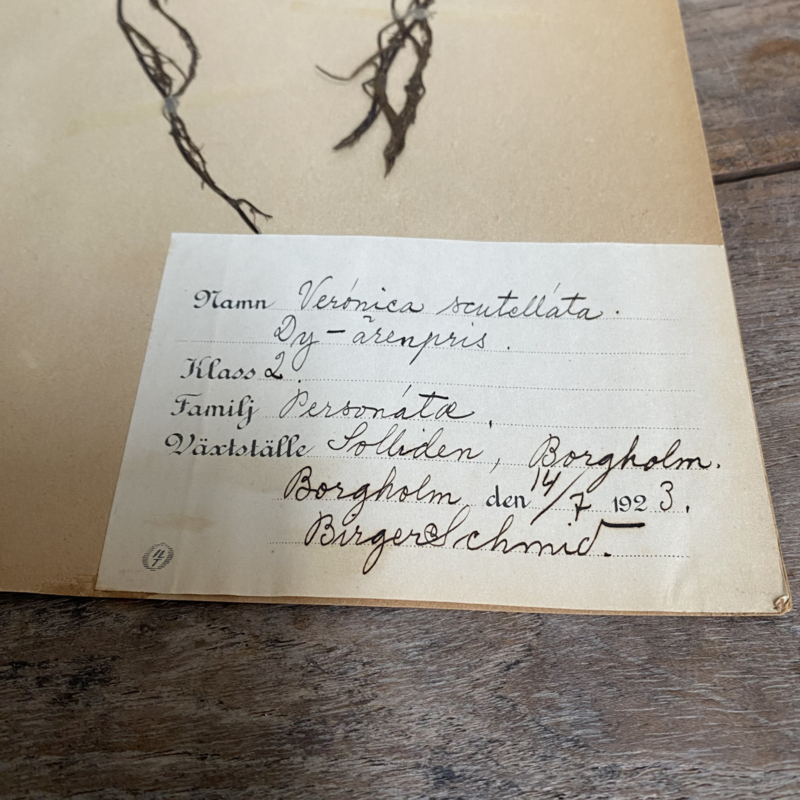 Namn Verónica scutelláta.
Dy-ärenpris.
Klass 2.
Familj Personátæ.
Växtställe Solliden, Borgholm.
Borgholm den 14/7 1923.
Birger Schmid.